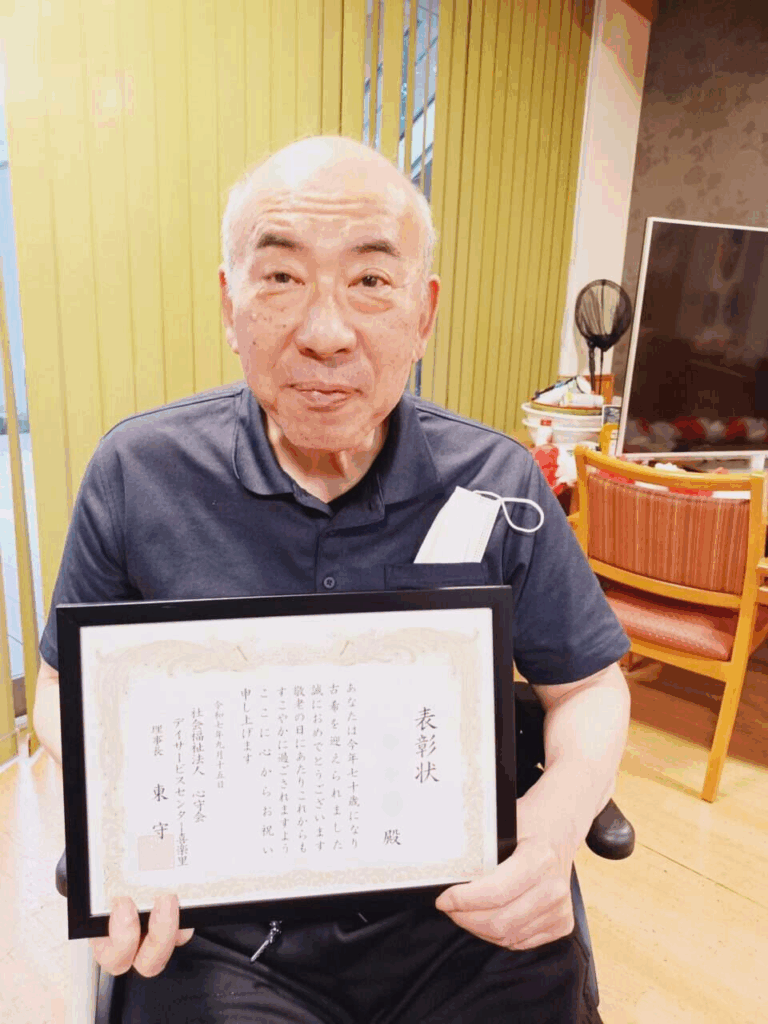 表彰状
殿
あなたは今年七十歳になり
古希を迎えられました
誠におめでとうございます
敬老の日にあたりこれからも
すこやかに過ごされますよう
ここに心からお祝い
申し上げます
令和七年九月十五日
社会福祉法人 心守会
デイサービスセンター喜楽里
理事長 東 守